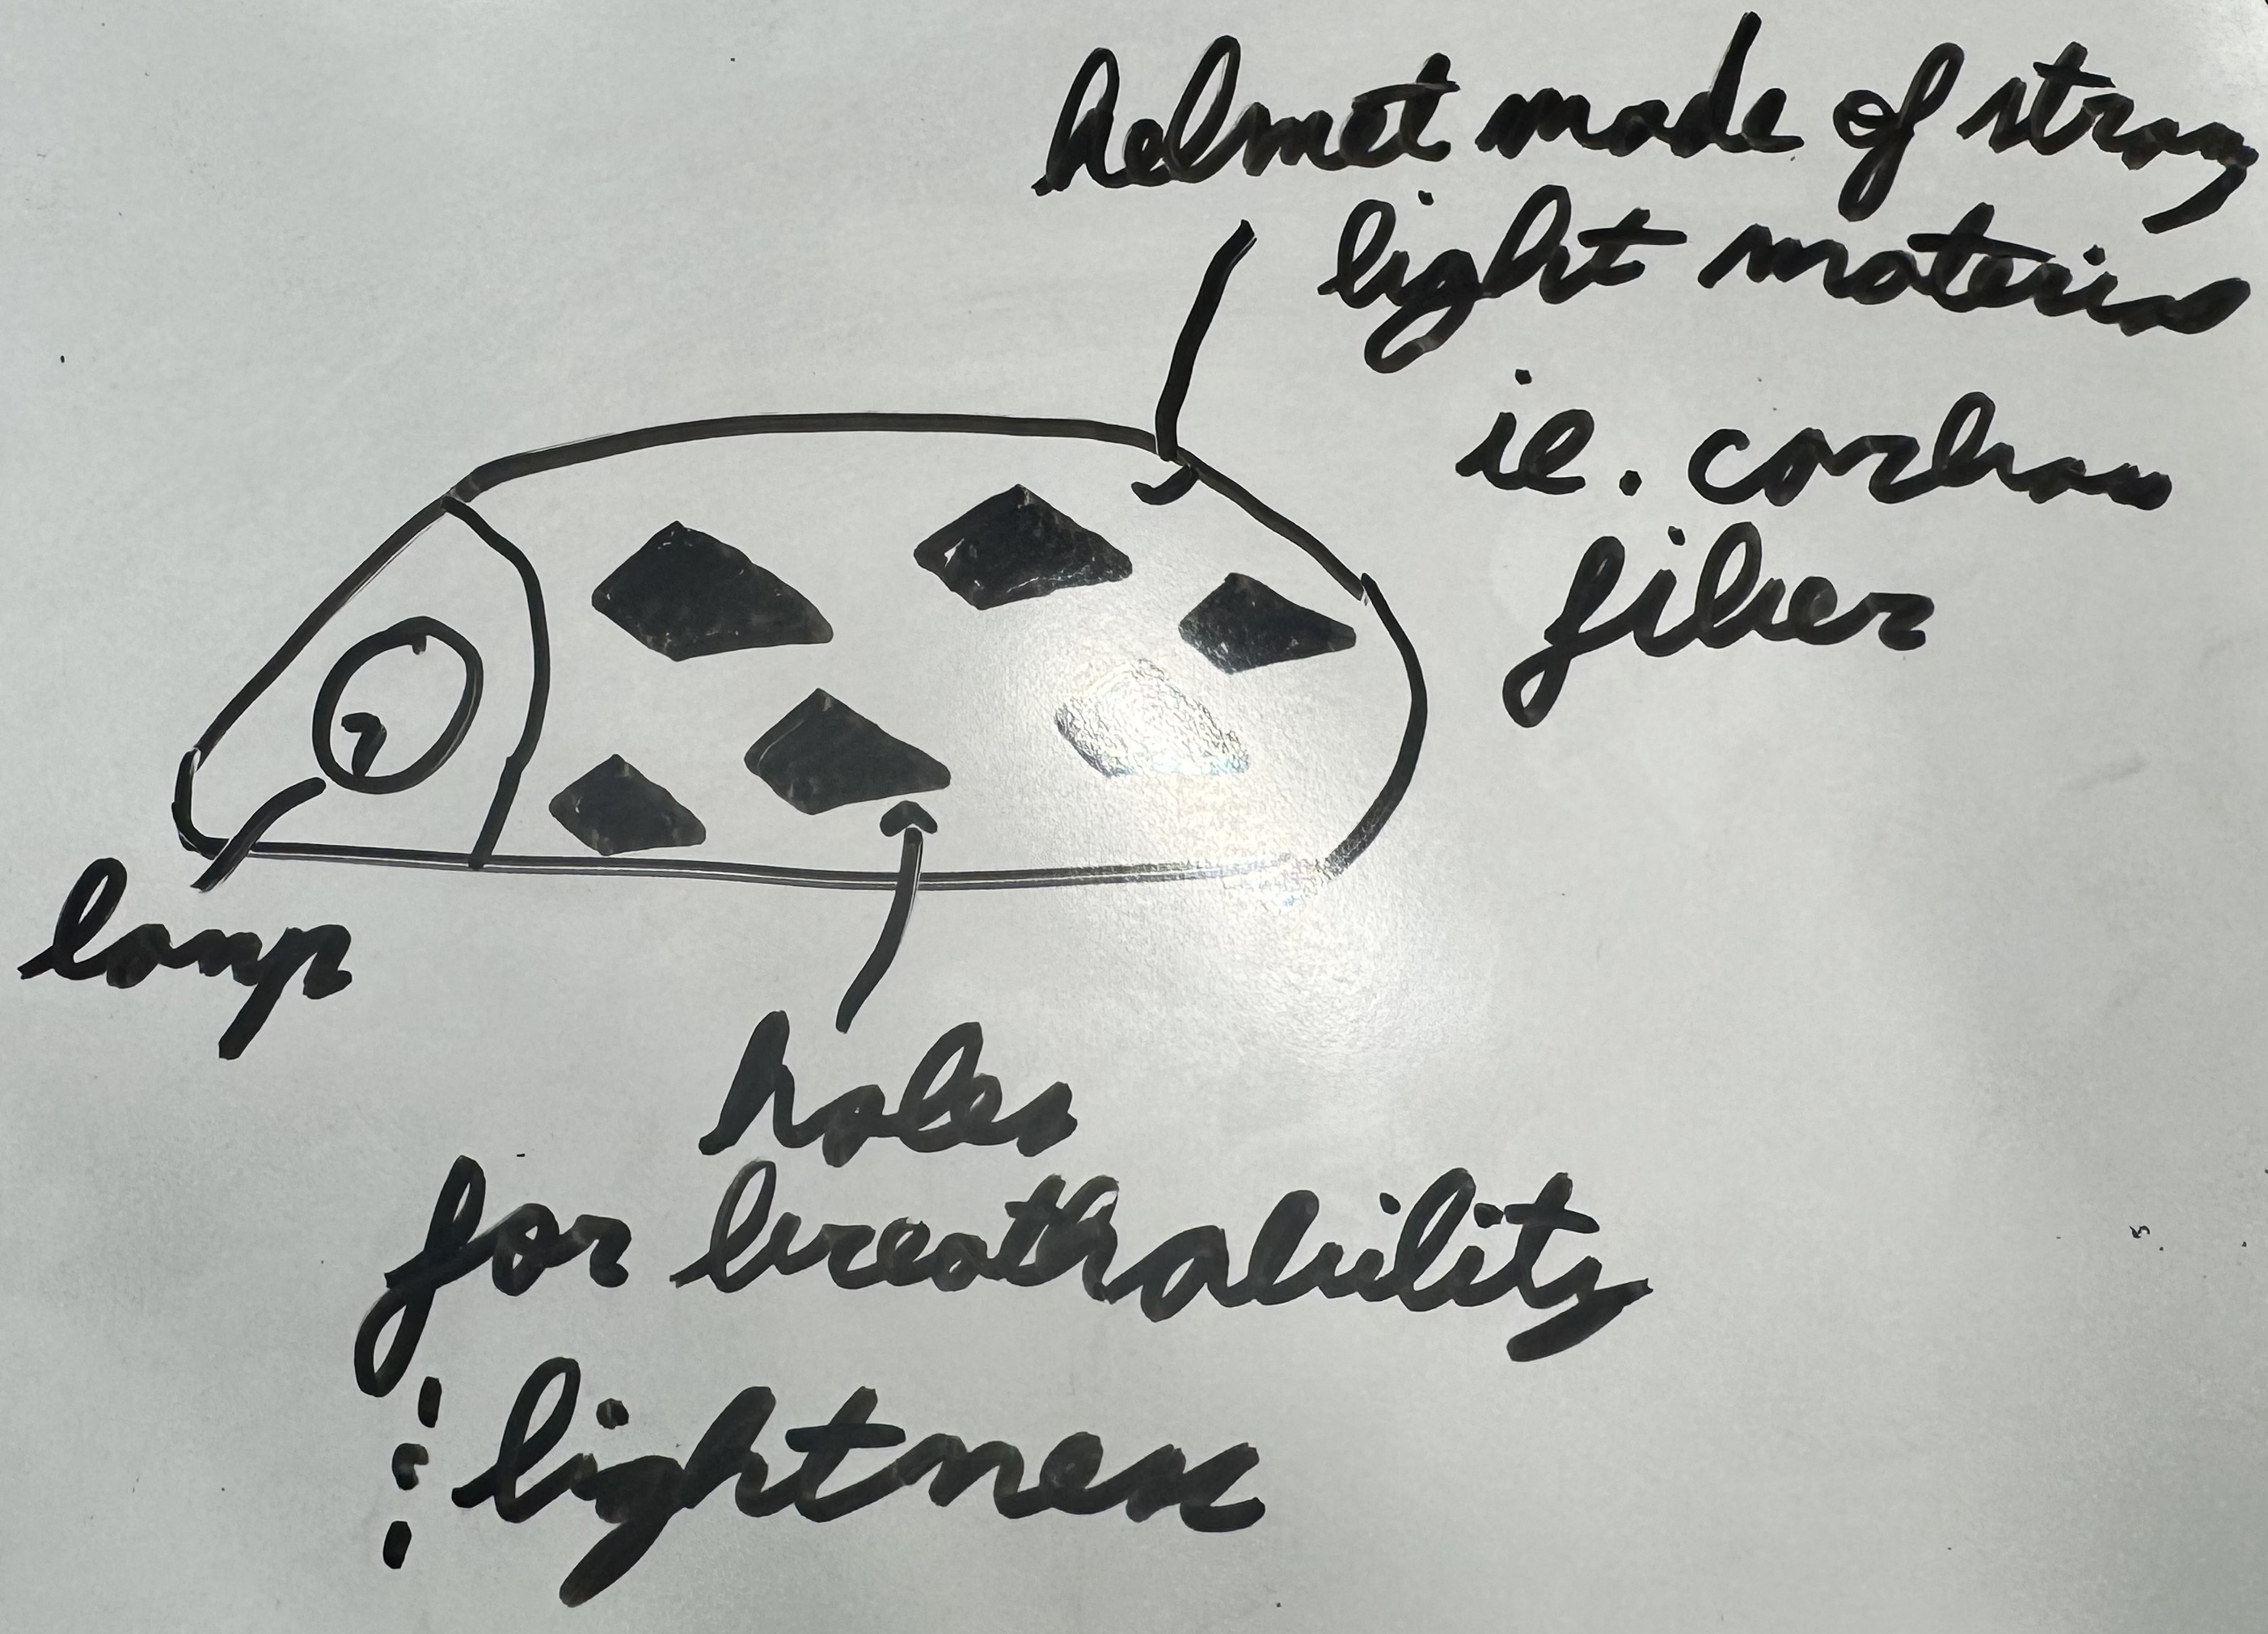 helmet made of strong
light material
ie. carbon
fiber
lamp
holes
for breathability
lightness